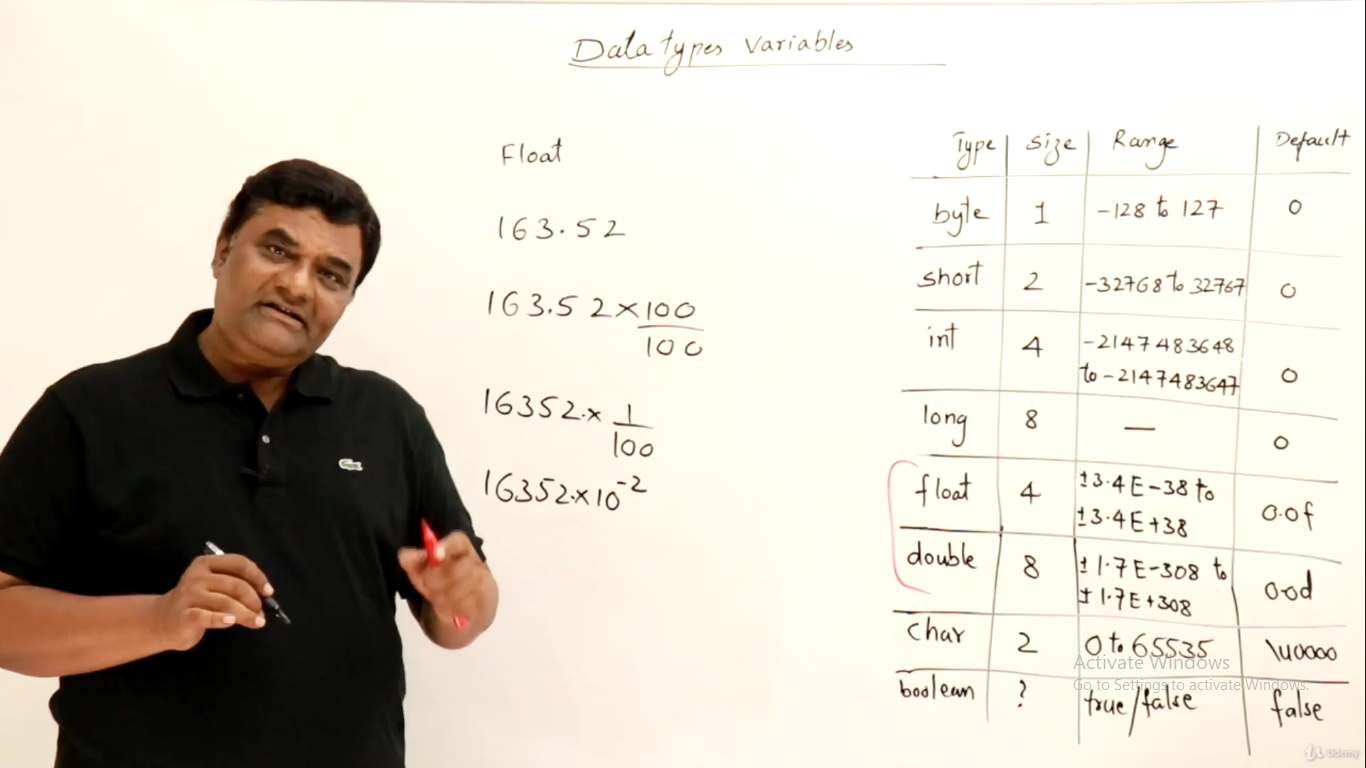 Data types Variables
Float
163.52
163.52 × 100
100
16352. × 1
100
16352. × 10⁻²
Type Size Range Default
byte 1 -128 to 127 0
short 2 -32768 to 32767 0
int 4 -2147483648
to -2147483647 0
long 8 — 0
float 4 ±3.4E-38 to
±3.4E+38 0.0f
double 8 ±1.7E-308 to
±1.7E+308 0.0d
char 2 0 to 65535 \u0000
boolean ? true/false false
Activate Windows
Go to Settings to activate Windows.
Udemy